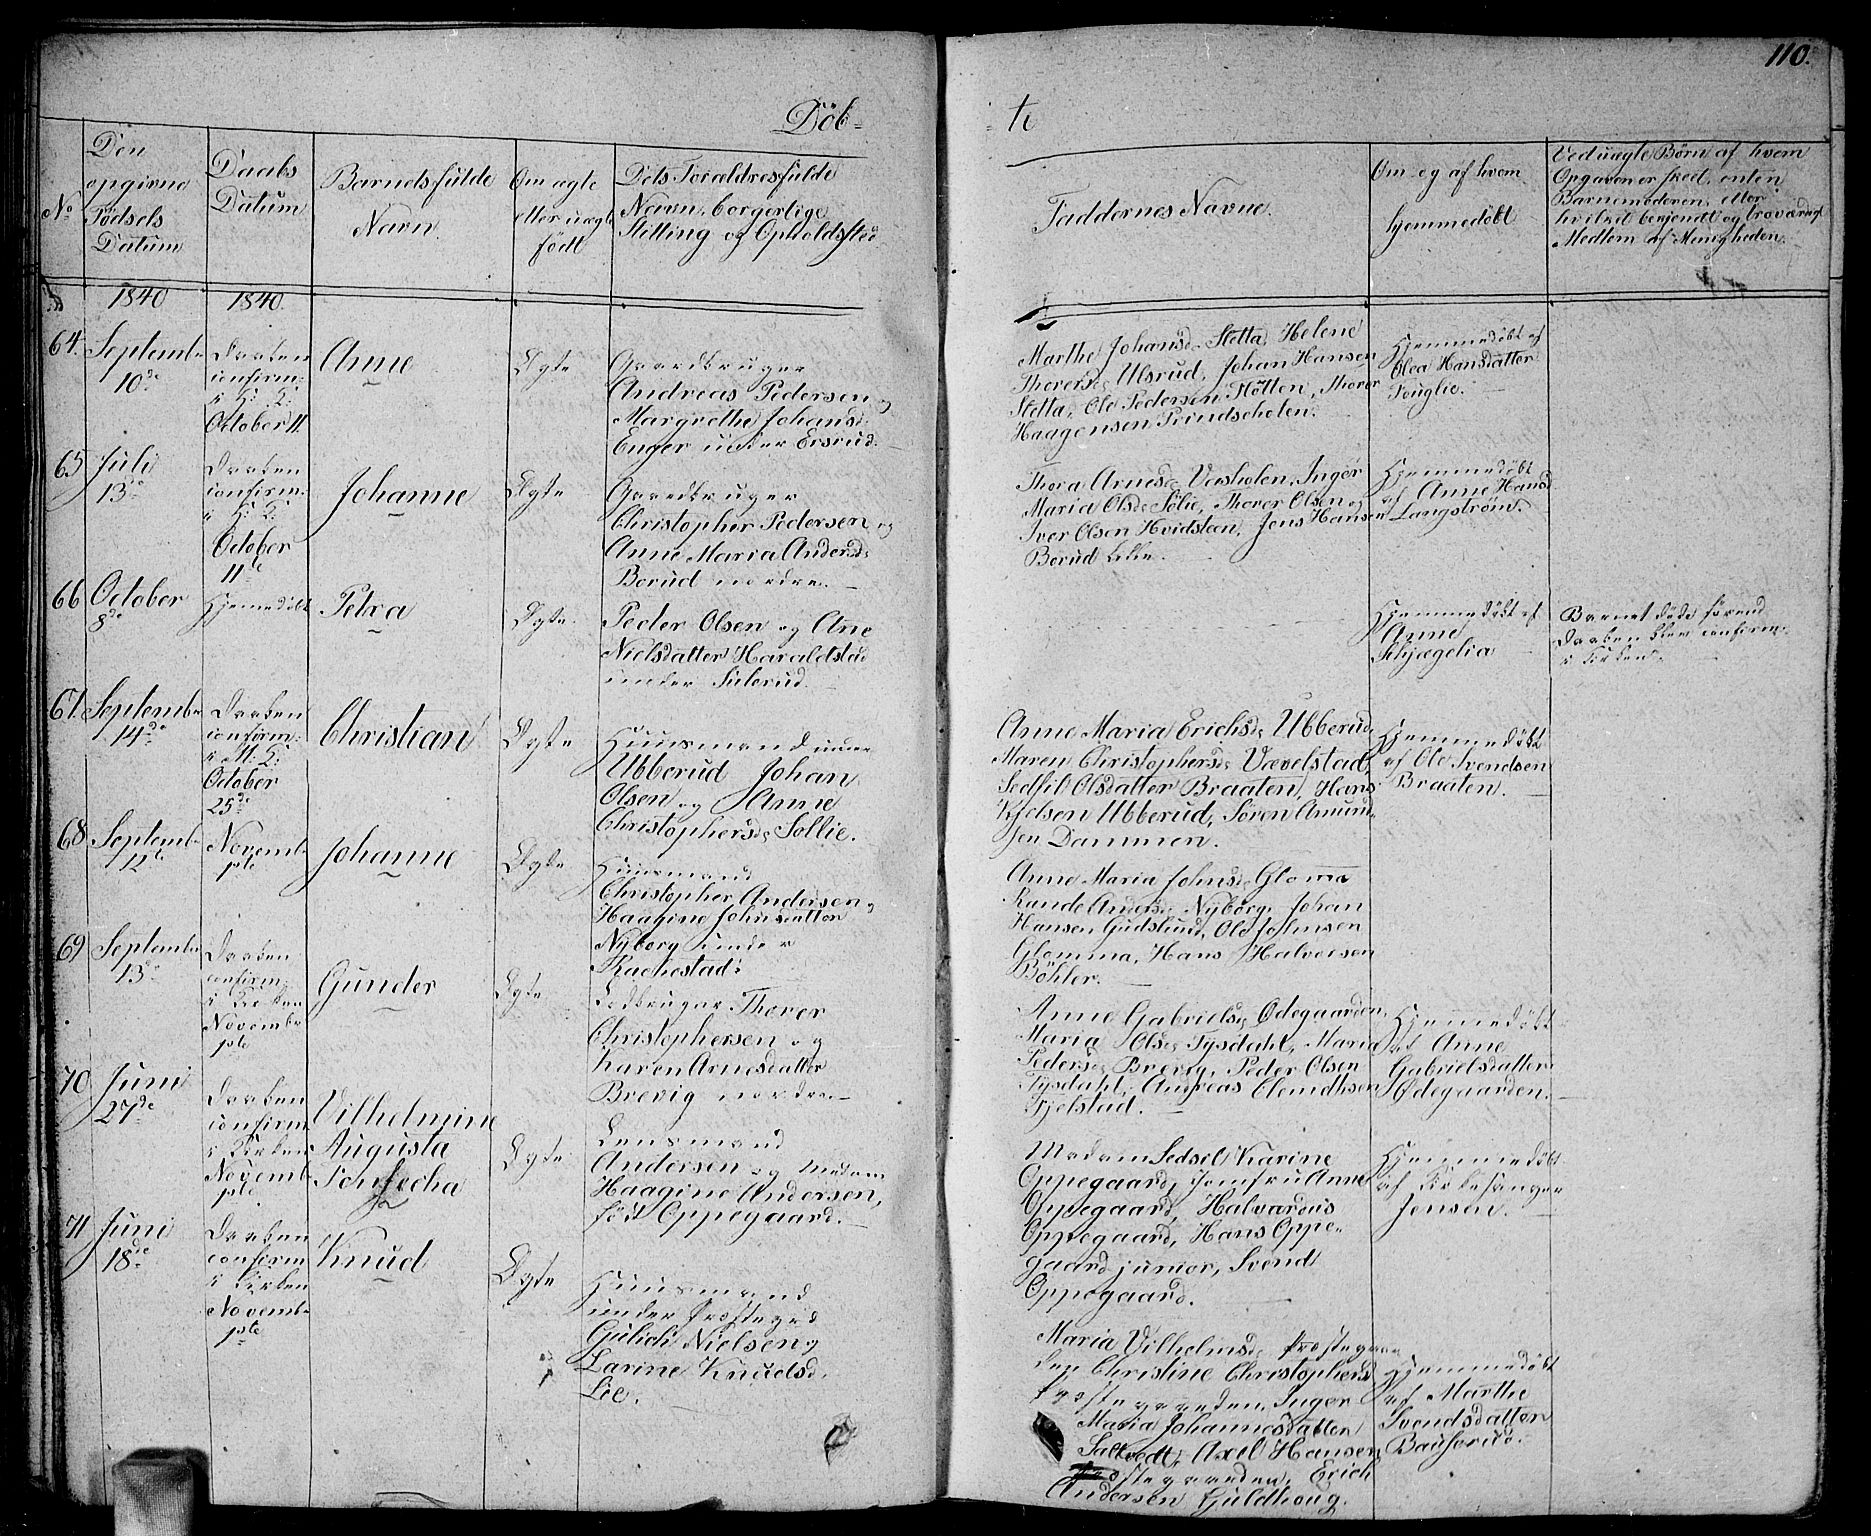 110.
Döb-
te
No
Den opgivne Fødsels Datum
Daabs Datum
Barnets fulde Navn.
Om ægte eller uægte født
Dets Forældres fulde Navn, borgerlige Stilling og Opholdsted
Faddernes Navne.
Om og af hvem hjemmedöbt
Ved uægte Børn af hvem Opgaven er skeet, enten Barnemoderen, eller hvilket bekjendt og troværdigt Medlem af Menigheden.
1840
1840.
64.
Septembr
10de
Daaben
confirm:
i H: K:
October 11.
Anne
Ægte
Gaardbruger
Andreas Pedersen og
Margrethe Johansd:
Enger under Ersrud.
Marthe Johansd: Sletta, Helene
Thorersd: Ulsrud, Johan Hansen
Sletta, Ole Pedersen Slötten, Thorer
Haagensen Prindseholen.
Hjemmedöbt af
Olea Hansdatter
Fouglie.
65
Juli
13de
Daaben
confirm:
i H: K:
October
11te
Johanne
Ægte
Gaardbruger
Christopher Pedersen og
Anne Maria Andersd:
Borud nordre.
Thora Arnesd: Vasholen, Inger
Maria Olsd: Sølie, Thorer Olsen og
Iver Olsen Hvidsteen, Jens Hansen
Borud Lille.
Hjemmedöbt
af Anne Hansd
Langström.
66
October
8de
Hjemedöbt
Petra
Ægte.
Peder Olsen og Ane
Nielsdatter Haraldstad
under Sulerud.
Hjemmedöbt af
Anne
Schjægelia
Barnet döde förend
Daaben blev confirm:
i Kirken.
67.
Septembr
14de
Daaben
confirm:
i M: K:
October
25de
Christian
Ægte
Huusmand under
Ubberud Johan
Olsen og Anne
Christophersd: Sollie.
Anne Maria Erichsd: Ubberud,
Maren Christophersd: Vævelstad,
Sedsil Olsdatter Braaten, Hans
Kjelsen Ubberud, Søren Amund-
sen Dammen.
Hjemmedöbt
af Ole Svendsen
Braaten.
68.
Septemb
12te
Novemb-
1ste
Johanne
Ægte
Huusmand
Christopher Andersen og
Haagine Johnsdatter
Nyborg under
Rachestad:
Anne Maria Johnsd: Glomma
Rande Andersd: Nyborg, Johan
Hansen Gudslund, Ole Johnsen
Glomma, Hans Halvorsen
Böhler.
69
Septembr
13de
Daaben
confirm:
i Kirken
Novembr
1ste
Gunder
Ægte
Ledbruger Thorer
Christophersen og
Karen Arnesdatter
Brevig nordre
Anne Gabrielsd: Ødegaarden,
Maria Olsd: Fysdahl, Maria
Pedersd: Brevig, Peder Olsen
Fysdahl, Andreas Clemdthsen
Fjelstad.
Hjemmedöbt
af Anne
Gabrielsdatter
Ødegaarden.
70.
Juni
27de
Daaben
confirm
i Kirken
Novemb-
1ste
Vilhelmine
Augusta
Ægte
Lensmand
Andersen og Madam
Haagine Andersen,
født Oppegaard.
Madam Sedsel Karine
Oppegaard, Jomfru Anne
Oppegaard, Halvardus
Oppegaard, Hans Oppe-
gaard junior, Svend
Oppegaard.
Hjemmedöbt
af Kirkesanger
Jensen.
71
Juni
18de
Daaben
confirm
i Kirken
Novembr
1ste
Knud
Ægte
Huusmand
under Præstegrd
Gulich Nielsen og
Larine Knudsd.
Lie.
Maria Vilhelmsd: Præstegaar-
den Christine Christophersd
Præstegaarden, Inger
Maria Johannesdatter
Saltvedt, Axel Hansen
Præstegaarden, Erich
Andersen Gjuldhoug.
Hjemmedöbt
af Marthe
Svendsdatter
Bauserud.